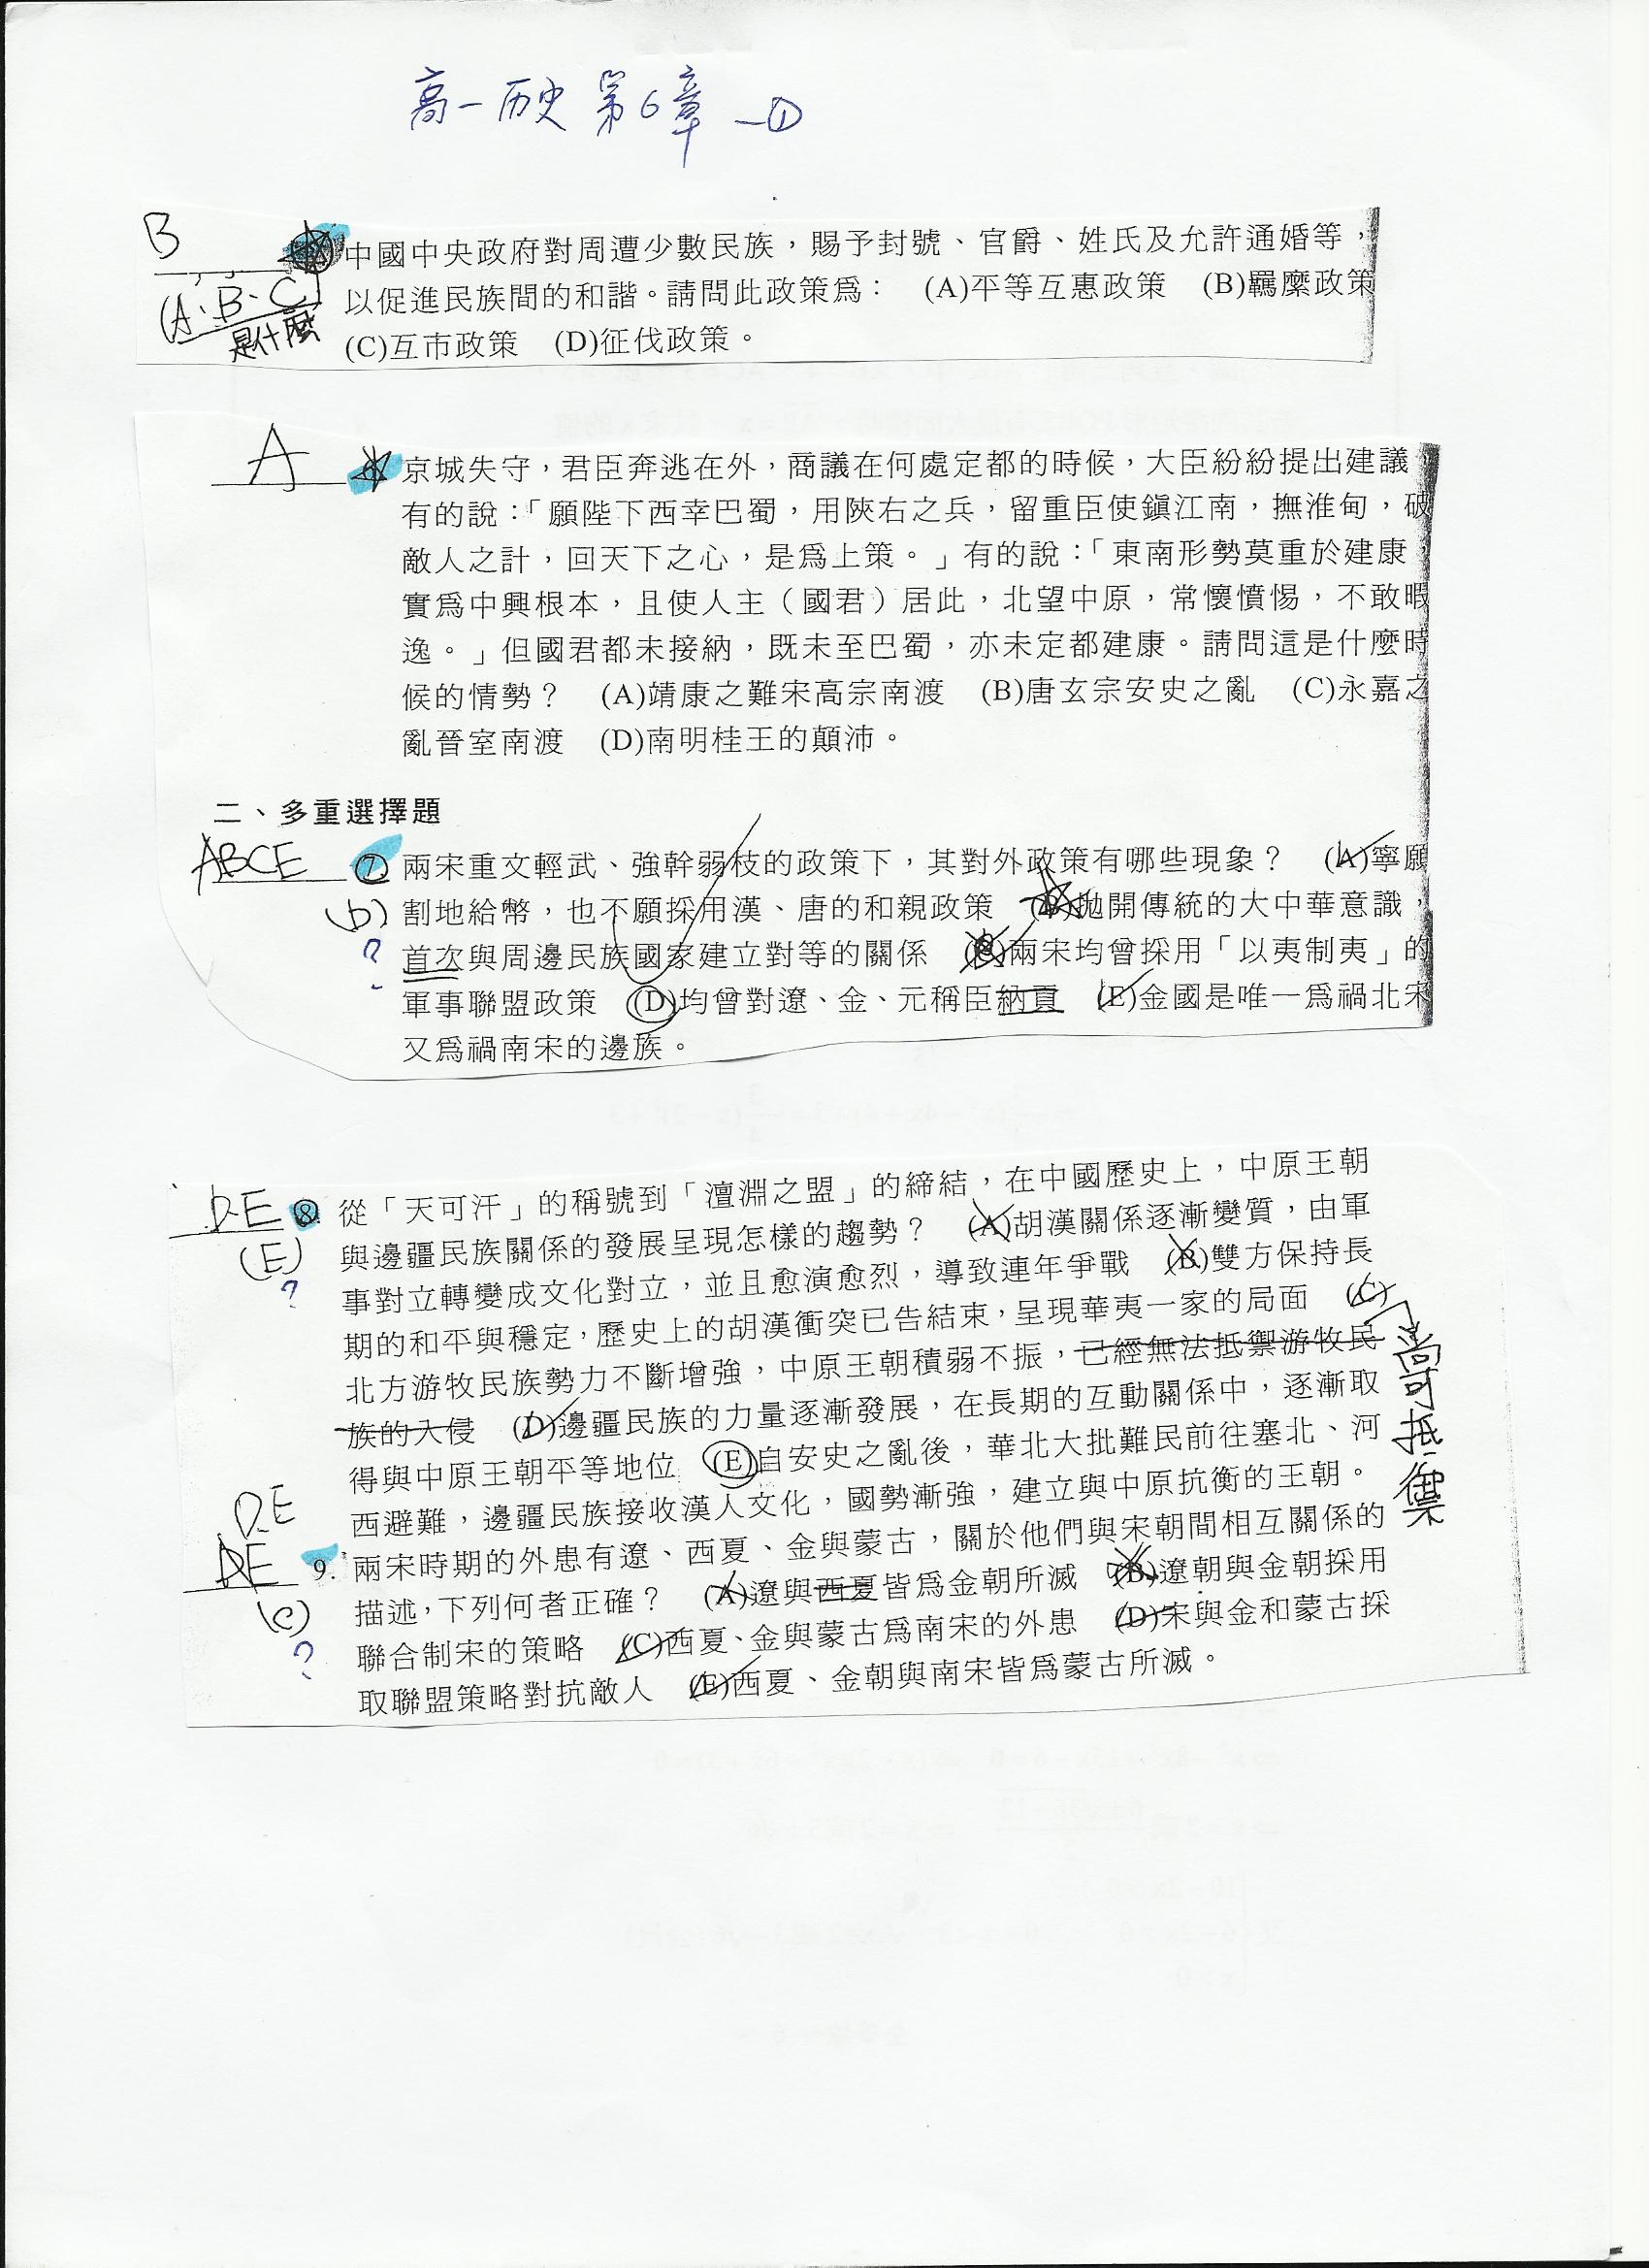 高一历史 第6章 —①
B
中國中央政府對周遭少數民族，賜予封號、官爵、姓氏及允許通婚等，
(A、B、C)
以促進民族間的和諧。請問此政策為： (A)平等互惠政策 (B)羈縻政策
是什麼
(C)互市政策 (D)征伐政策。
A
京城失守，君臣奔逃在外，商議在何處定都的時候，大臣紛紛提出建議，
有的說：「願陛下西幸巴蜀，用陝右之兵，留重臣使鎮江南，撫淮甸，破
敵人之計，回天下之心，是為上策。」有的說：「東南形勢莫重於建康，
實為中興根本，且使人主（國君）居此，北望中原，常懷憤惕，不敢暇
逸。」但國君都未接納，既未至巴蜀，亦未定都建康。請問這是什麼時
候的情勢？ (A)靖康之難宋高宗南渡 (B)唐玄宗安史之亂 (C)永嘉之
亂晉室南渡 (D)南明桂王的顛沛。
二、多重選擇題
ABCE 7. 兩宋重文輕武、強幹弱枝的政策下，其對外政策有哪些現象？ (A)寧願
(D) 割地給幣，也不願採用漢、唐的和親政策 (B)拋開傳統的大中華意識，
? 首次與周邊民族國家建立對等的關係 (C)兩宋均曾採用「以夷制夷」的
軍事聯盟政策 (D)均曾對遼、金、元稱臣納貢 (E)金國是唯一為禍北宋
又為禍南宋的邊族。
D.E 8. 從「天可汗」的稱號到「澶淵之盟」的締結，在中國歷史上，中原王朝
(E) 與邊疆民族關係的發展呈現怎樣的趨勢？ (A)胡漢關係逐漸變質，由軍
? 事對立轉變成文化對立，並且愈演愈烈，導致連年爭戰 (B)雙方保持長
期的和平與穩定，歷史上的胡漢衝突已告結束，呈現華夷一家的局面 (C)
北方游牧民族勢力不斷增強，中原王朝積弱不振，已經無法抵禦游牧民
尚可抵禦
族的入侵 (D)邊疆民族的力量逐漸發展，在長期的互動關係中，逐漸取
得與中原王朝平等地位 (E)自安史之亂後，華北大批難民前往塞北、河
西避難，邊疆民族接收漢人文化，國勢漸強，建立與中原抗衡的王朝。
D.E
DE 9. 兩宋時期的外患有遼、西夏、金與蒙古，關於他們與宋朝間相互關係的
(C) 描述，下列何者正確？ (A)遼與西夏皆為金朝所滅 (B)遼朝與金朝採用
? 聯合制宋的策略 (C)西夏、金與蒙古為南宋的外患 (D)宋與金和蒙古採
取聯盟策略對抗敵人 (E)西夏、金朝與南宋皆為蒙古所滅。